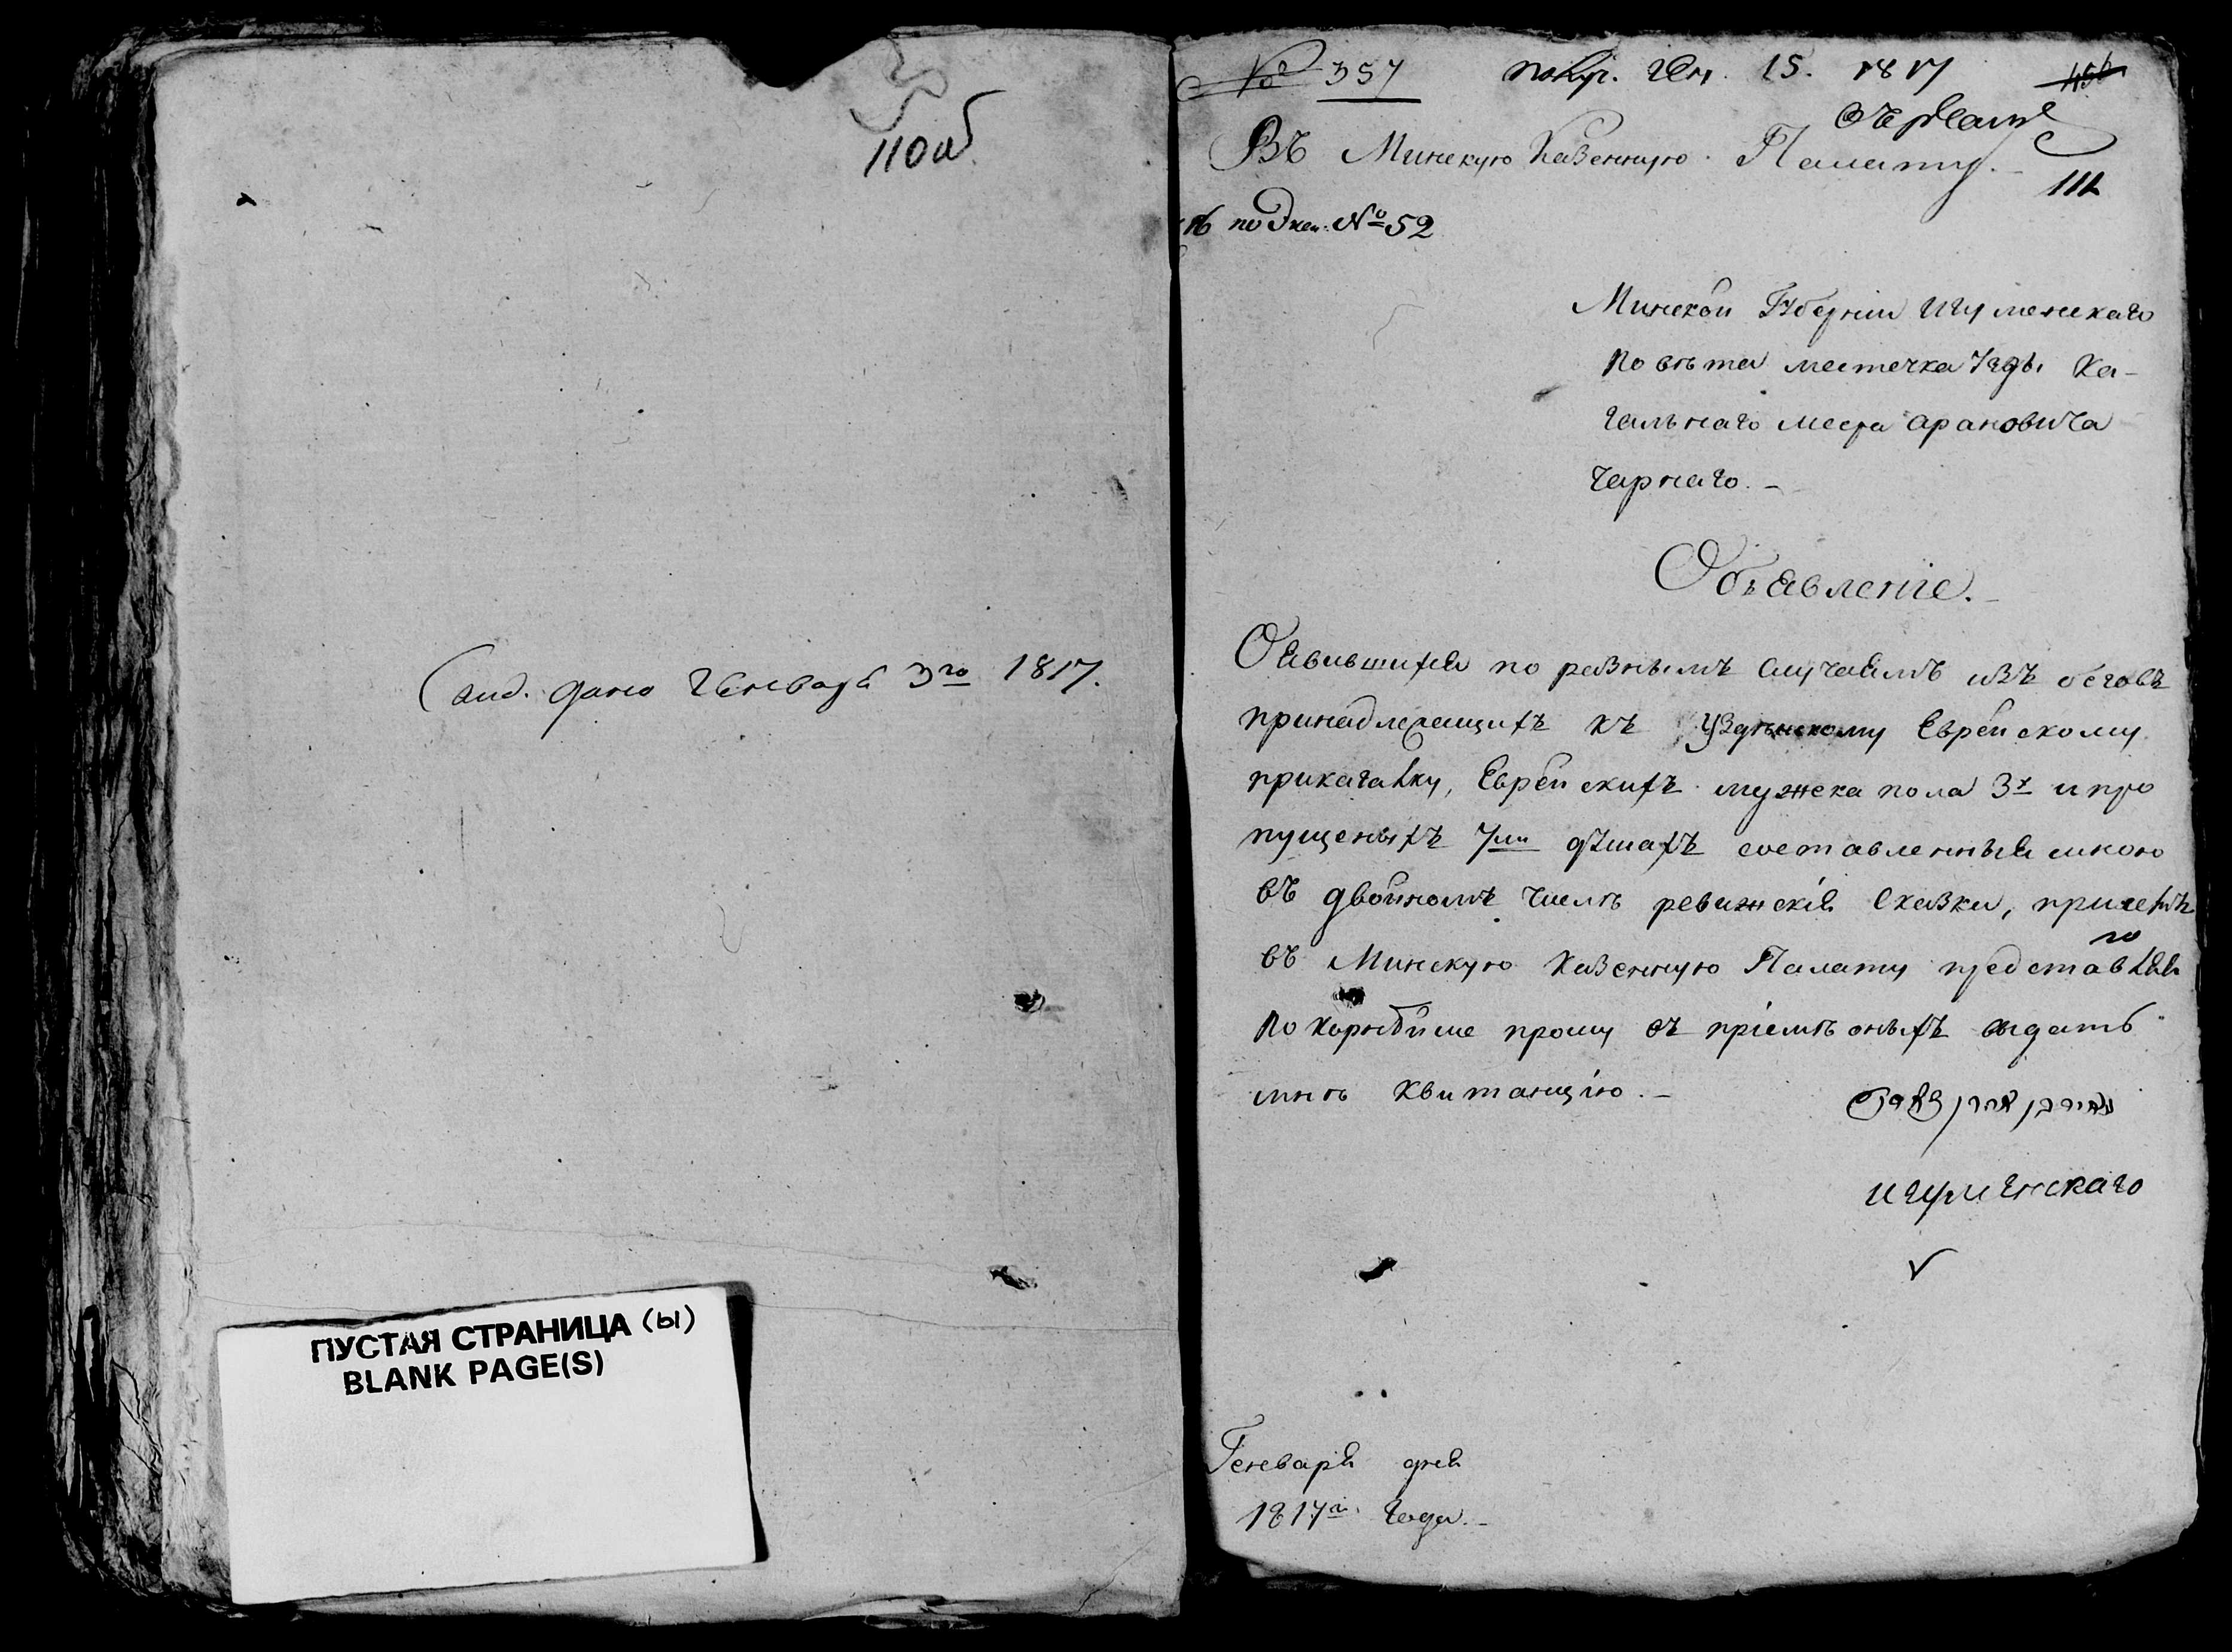 110 об
Свид. дано Генваря 3го 1817.
ПУСТАЯ СТРАНИЦА (Ы)
BLANK PAGE(S)
№ 357 получ. Ген. 15. 1817
Въ Минскую Казенную Палату.
111
№ 52
Минской Губерніи Игуменскаго
Повѣта местечка Узды Ка-
гальнаго Меера Арановича
Чарнаго.
Объявленіе.
Оявившихся по разнымъ случаямъ изъ беговъ
принадлежащихъ къ Уздѣнскому Еврейскому
прикагалку, Еврейскихъ мужска пола 3х и про
пущеныхъ 7ми дѣшахъ составленныя мною
въ двойномъ числѣ ревижскія сказки, при семъ
въ Минскую Казенную Палату представляя
Покорнѣйше прошу въ пріемѣ оныхъ выдать
мнѣ Квитанцію.
игуменскаго
Генваря дня
1817го Года.